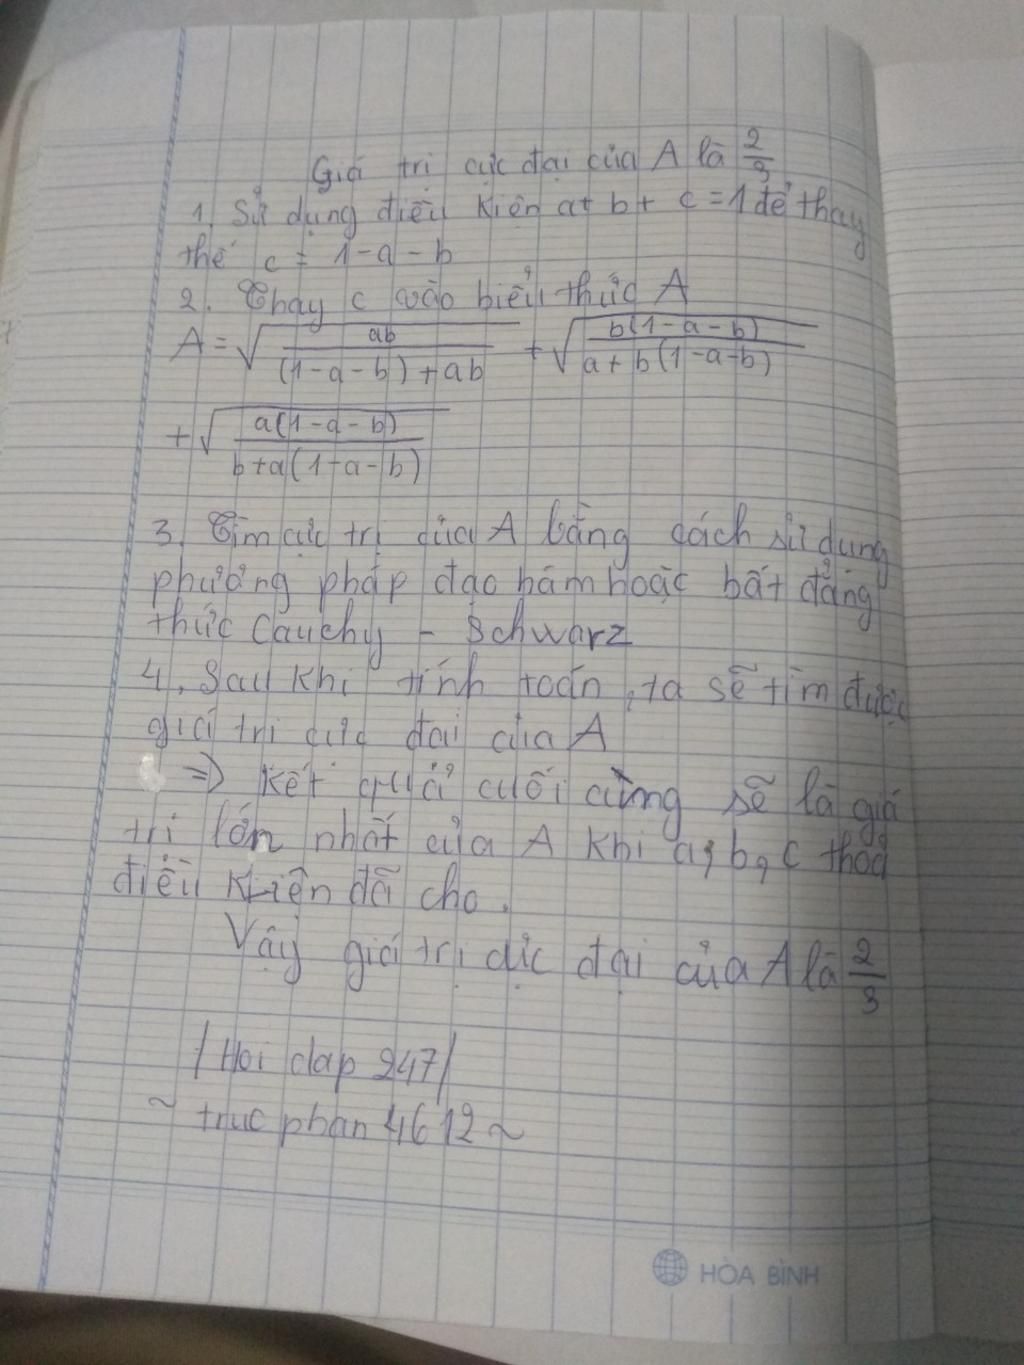 Giá trị cực đại của A là 2/3
1. Sử dụng điều kiện a+ b+ c = 1 để thay
thế c = 1-a-b
2. Thay c vào biểu thức A
A = √(ab / (1-a-b)+ab) + √(b(1-a-b) / a+b(1-a-b))
+ √(a(1-a-b) / b+a(1-a-b))
3. Tìm cực trị của A bằng cách sử dụng
phương pháp đạo hàm hoặc bất đẳng
thức Cauchy - Schwarz
4. Sau khi tính toán, ta sẽ tìm được
giá trị cực đại của A
=> Kết quả cuối cùng sẽ là giá
trị lớn nhất của A khi a, b, c thoả
điều kiện đã cho.
Vậy giá trị cực đại của A là 2/3
/Hoi dap 247/
~ truc phan 4612 ~
HÒA BÌNH